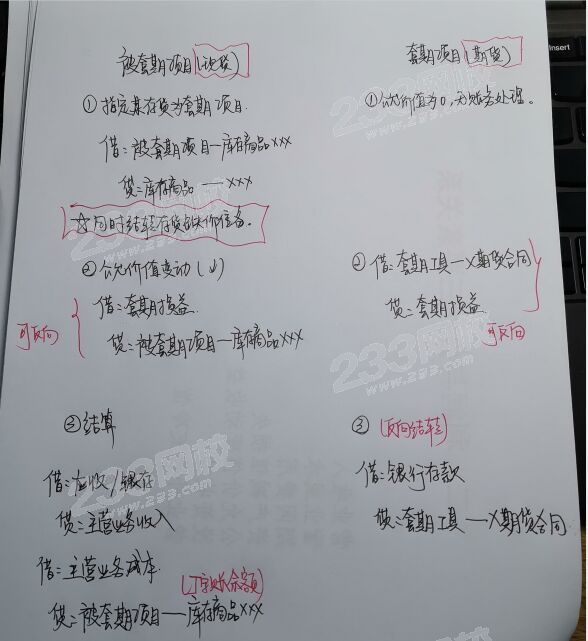 被套期项目(现货)
①指定某存货为套期项目.
借:被套期项目—库存商品xxx
贷:库存商品 —xxx
☆同时结转存货跌价准备。
②公允价值变动(↓)
可反向
借:套期损益.
贷:被套期项目—库存商品xxx
③结算
借:应收/银存
贷:主营业务收入
借:主营业务成本.
(丁字账余额)
贷:被套期项目—库存商品xxx
套期项目(期货)
①公允价值为0,无账务处理。
②借:套期工具—X期货合同
贷:套期损益.
可反向
③(反向结转)
借:银行存款
贷:套期工具—X期货合同.
233网校
www.233.com
233网校
www.233.com
233网校
www.233.com
233网校
www.233.com
Insert